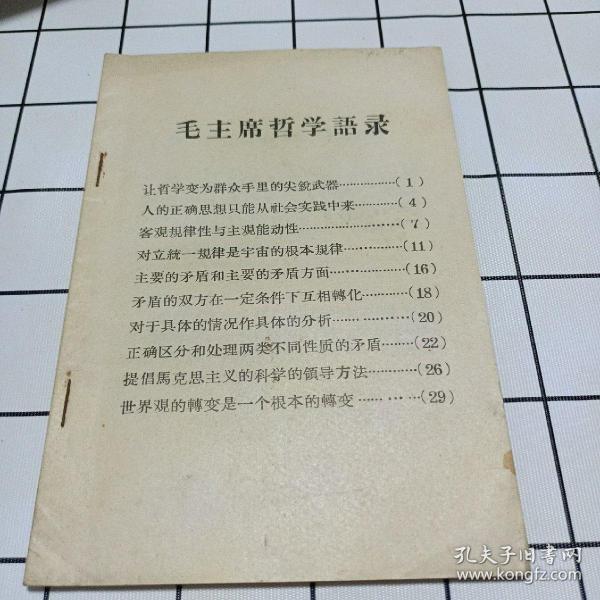 毛主席哲学語录
让哲学变为群众手里的尖銳武器……………(1)
人的正确思想只能从社会实践中来…………(4)
客观規律性与主观能动性……………………(7)
对立統一規律是宇宙的根本規律……………(11)
主要的矛盾和主要的矛盾方面………………(16)
矛盾的双方在一定条件下互相轉化…………(18)
对于具体的情况作具体的分析………………(20)
正确区分和处理两类不同性质的矛盾………(22)
提倡馬克思主义的科学的領导方法…………(26)
世界观的轉变是一个根本的轉变……………(29)
孔夫子旧书网
www.kongfz.com